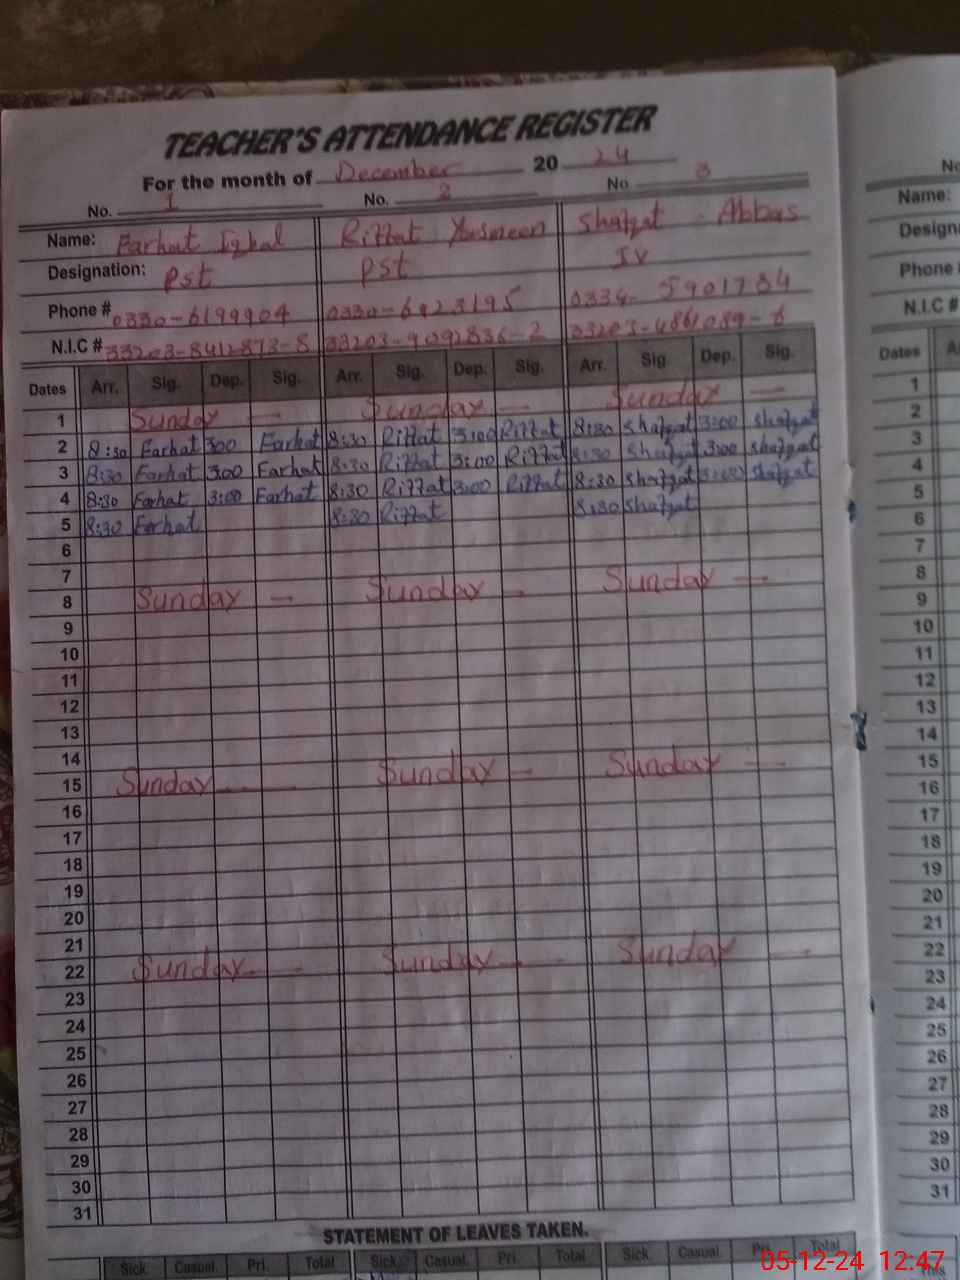 TEACHER'S ATTENDANCE REGISTER
For the month of December 2024
No. 1 No. 2 No. 3
Name: Farhat Iqbal Riffat Yasmeen Shafqat Abbas
Designation: PST PST IV
Phone # 0330-6199904 0330-6423195 0334-5901784
N.I.C # 33203-8412873-8 33203-9092836-2 33203-4861089-6
Dates Arr. Sig. Dep. Sig. Arr. Sig. Dep. Sig. Arr. Sig. Dep. Sig.
1 Sunday — Sunday — Sunday —
2 8:30 Farhat 300 Farhat 8:30 Riffat 3:00 Riffat 8:30 Shafqat 3:00 Shafqat
3 8:30 Farhat 300 Farhat 8:30 Riffat 3:00 Riffat 8:30 Shafqat 3:00 Shafqat
4 8:30 Farhat 3:00 Farhat 8:30 Riffat 3:00 Riffat 8:30 Shafqat 3:00 Shafqat
5 8:30 Farhat 8:30 Riffat 8:30 Shafqat
6
7
8 Sunday — Sunday - Sunday —
9
10
11
12
13
14
15 Sunday — Sunday — Sunday —
16
17
18
19
20
21
22 Sunday — Sunday — Sunday —
23
24
25
26
27
28
29
30
31
STATEMENT OF LEAVES TAKEN.
Sick. Casual. Pri. Total Sick. Casual. Pri. Total Sick. Casual. Pri. Total
Name:
Phone
N.I.C #
Dates
1
2
3
4
5
6
7
8
9
10
11
12
13
14
15
16
17
18
19
20
21
22
23
24
25
26
27
28
29
30
31
This
05-12-24 12:47